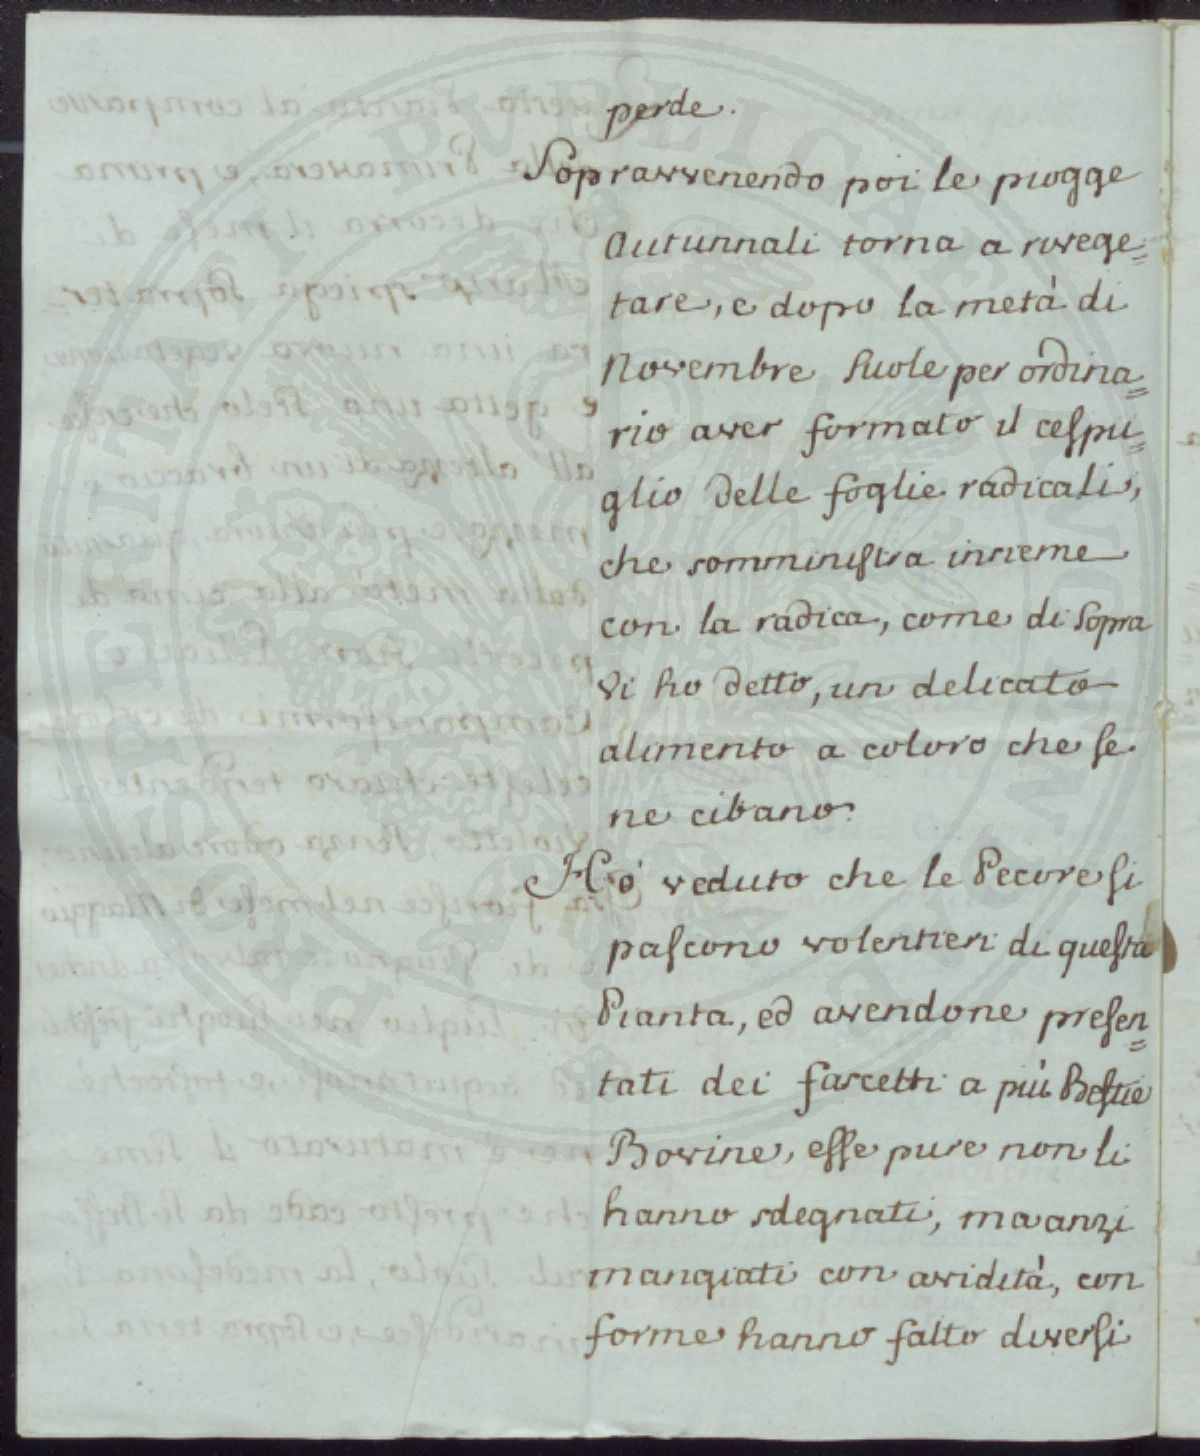 perde.
Sopravvenendo poi le piogge
Autunnali torna a rivege=
tare, e dopo la metà di
Novembre suole per ordina=
rio aver formato il cespu=
glio delle foglie radicali,
che somministra insieme
con la radica, come di sopra
vi ho detto, un delicato
alimento a coloro che se
ne cibano.
Hò veduto che le Pecore si
pascono volentieri di questa
Pianta, ed avendone presen=
tati dei fascetti a più Bestie
Bovine, esse pure non li
hanno sdegnati, ma anzi
mangiati con avidità, con
forme hanno fatto diversi